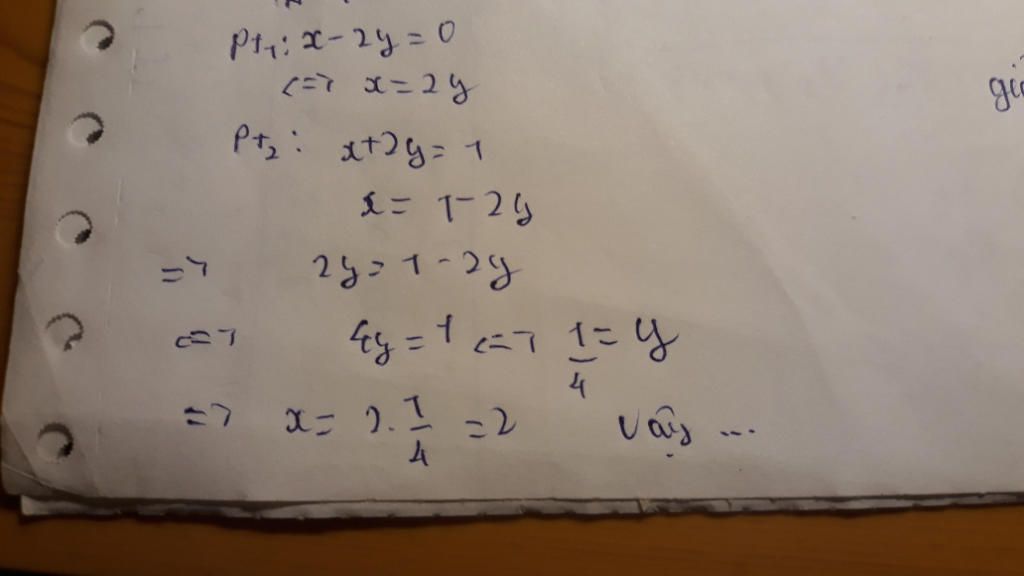 Pt₁: x - 2y = 0
<=> x = 2y
Pt₂: x + 2y = 1
x = 1 - 2y
=> 2y = 1 - 2y
<=> 4y = 1 <=> 1/4 = y
=> x = 2. 1/4 = 2 Vậy ...